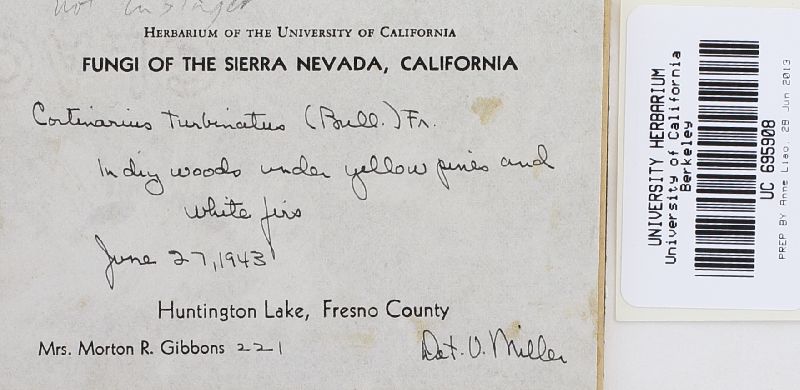 not in Singer
HERBARIUM OF THE UNIVERSITY OF CALIFORNIA
FUNGI OF THE SIERRA NEVADA, CALIFORNIA
Cortinarius turbinatus (Bull.) Fr.
In dry woods under yellow pines and
white firs
June 27, 1943
Huntington Lake, Fresno County
Mrs. Morton R. Gibbons 221
Det. O. Miller
UNIVERSITY HERBARIUM
University of California
Berkeley
UC 695908
PREP BY Anne Liao, 28 Jun 2013